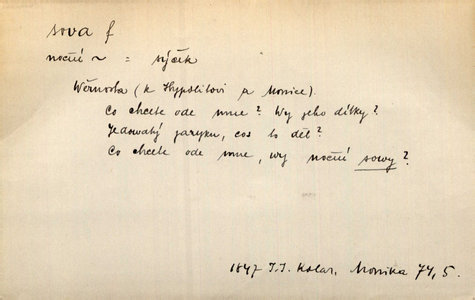 sova f
noční ~ = sýček
Wěrnosta (k Hyppolitovi a Monice).
Co chcete ode mne? Wy jeho dítky?
Jedowatý jazyku, cos to děl?
Co chcete ode mne, wy noční sowy?
1847 J.J. Kolar, Monika 74, 5.